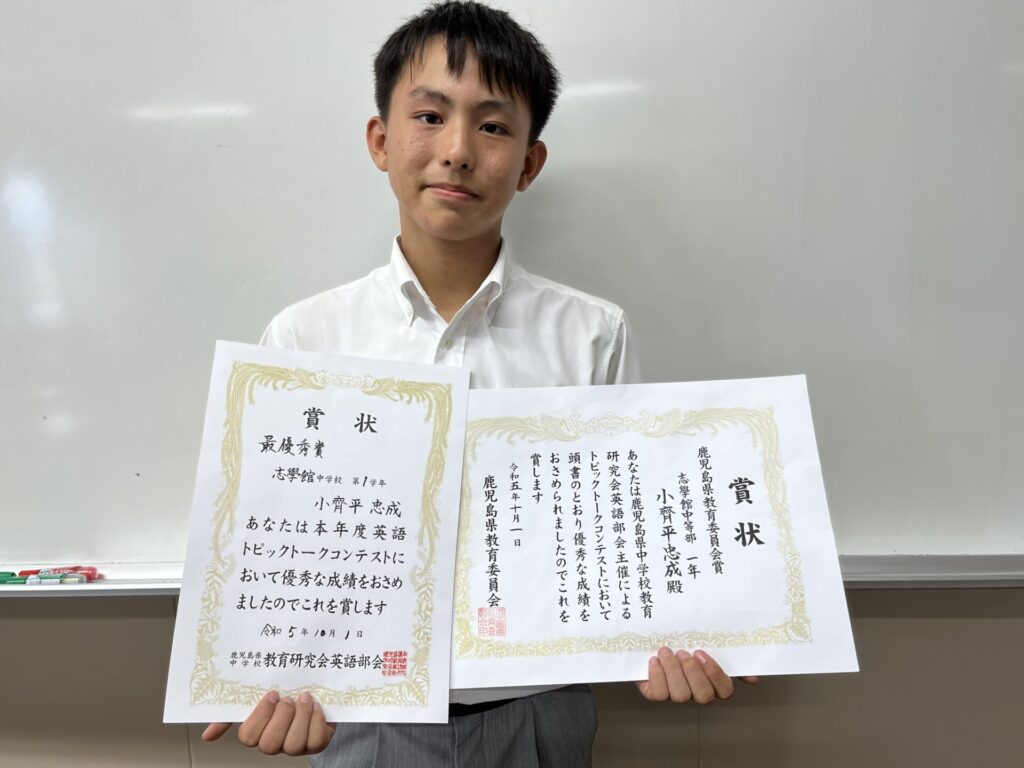 賞状
最優秀賞
志學館中学校 第1学年
小齊平 忠成
あなたは本年度英語
トピックトークコンテストに
おいて優秀な成績をおさめ
ましたのでこれを賞します
令和5年10月1日
鹿児島県
中学校教育研究会英語部会
賞状
鹿児島県教育委員会賞
志學館中等部 一年
小齊平忠成殿
あなたは鹿児島県中学校教育
研究会英語部会主催による
トピックトークコンテストにおいて
頭書のとおり優秀な成績を
おさめられましたのでこれを
賞します
令和五年十月一日
鹿児島県教育委員会